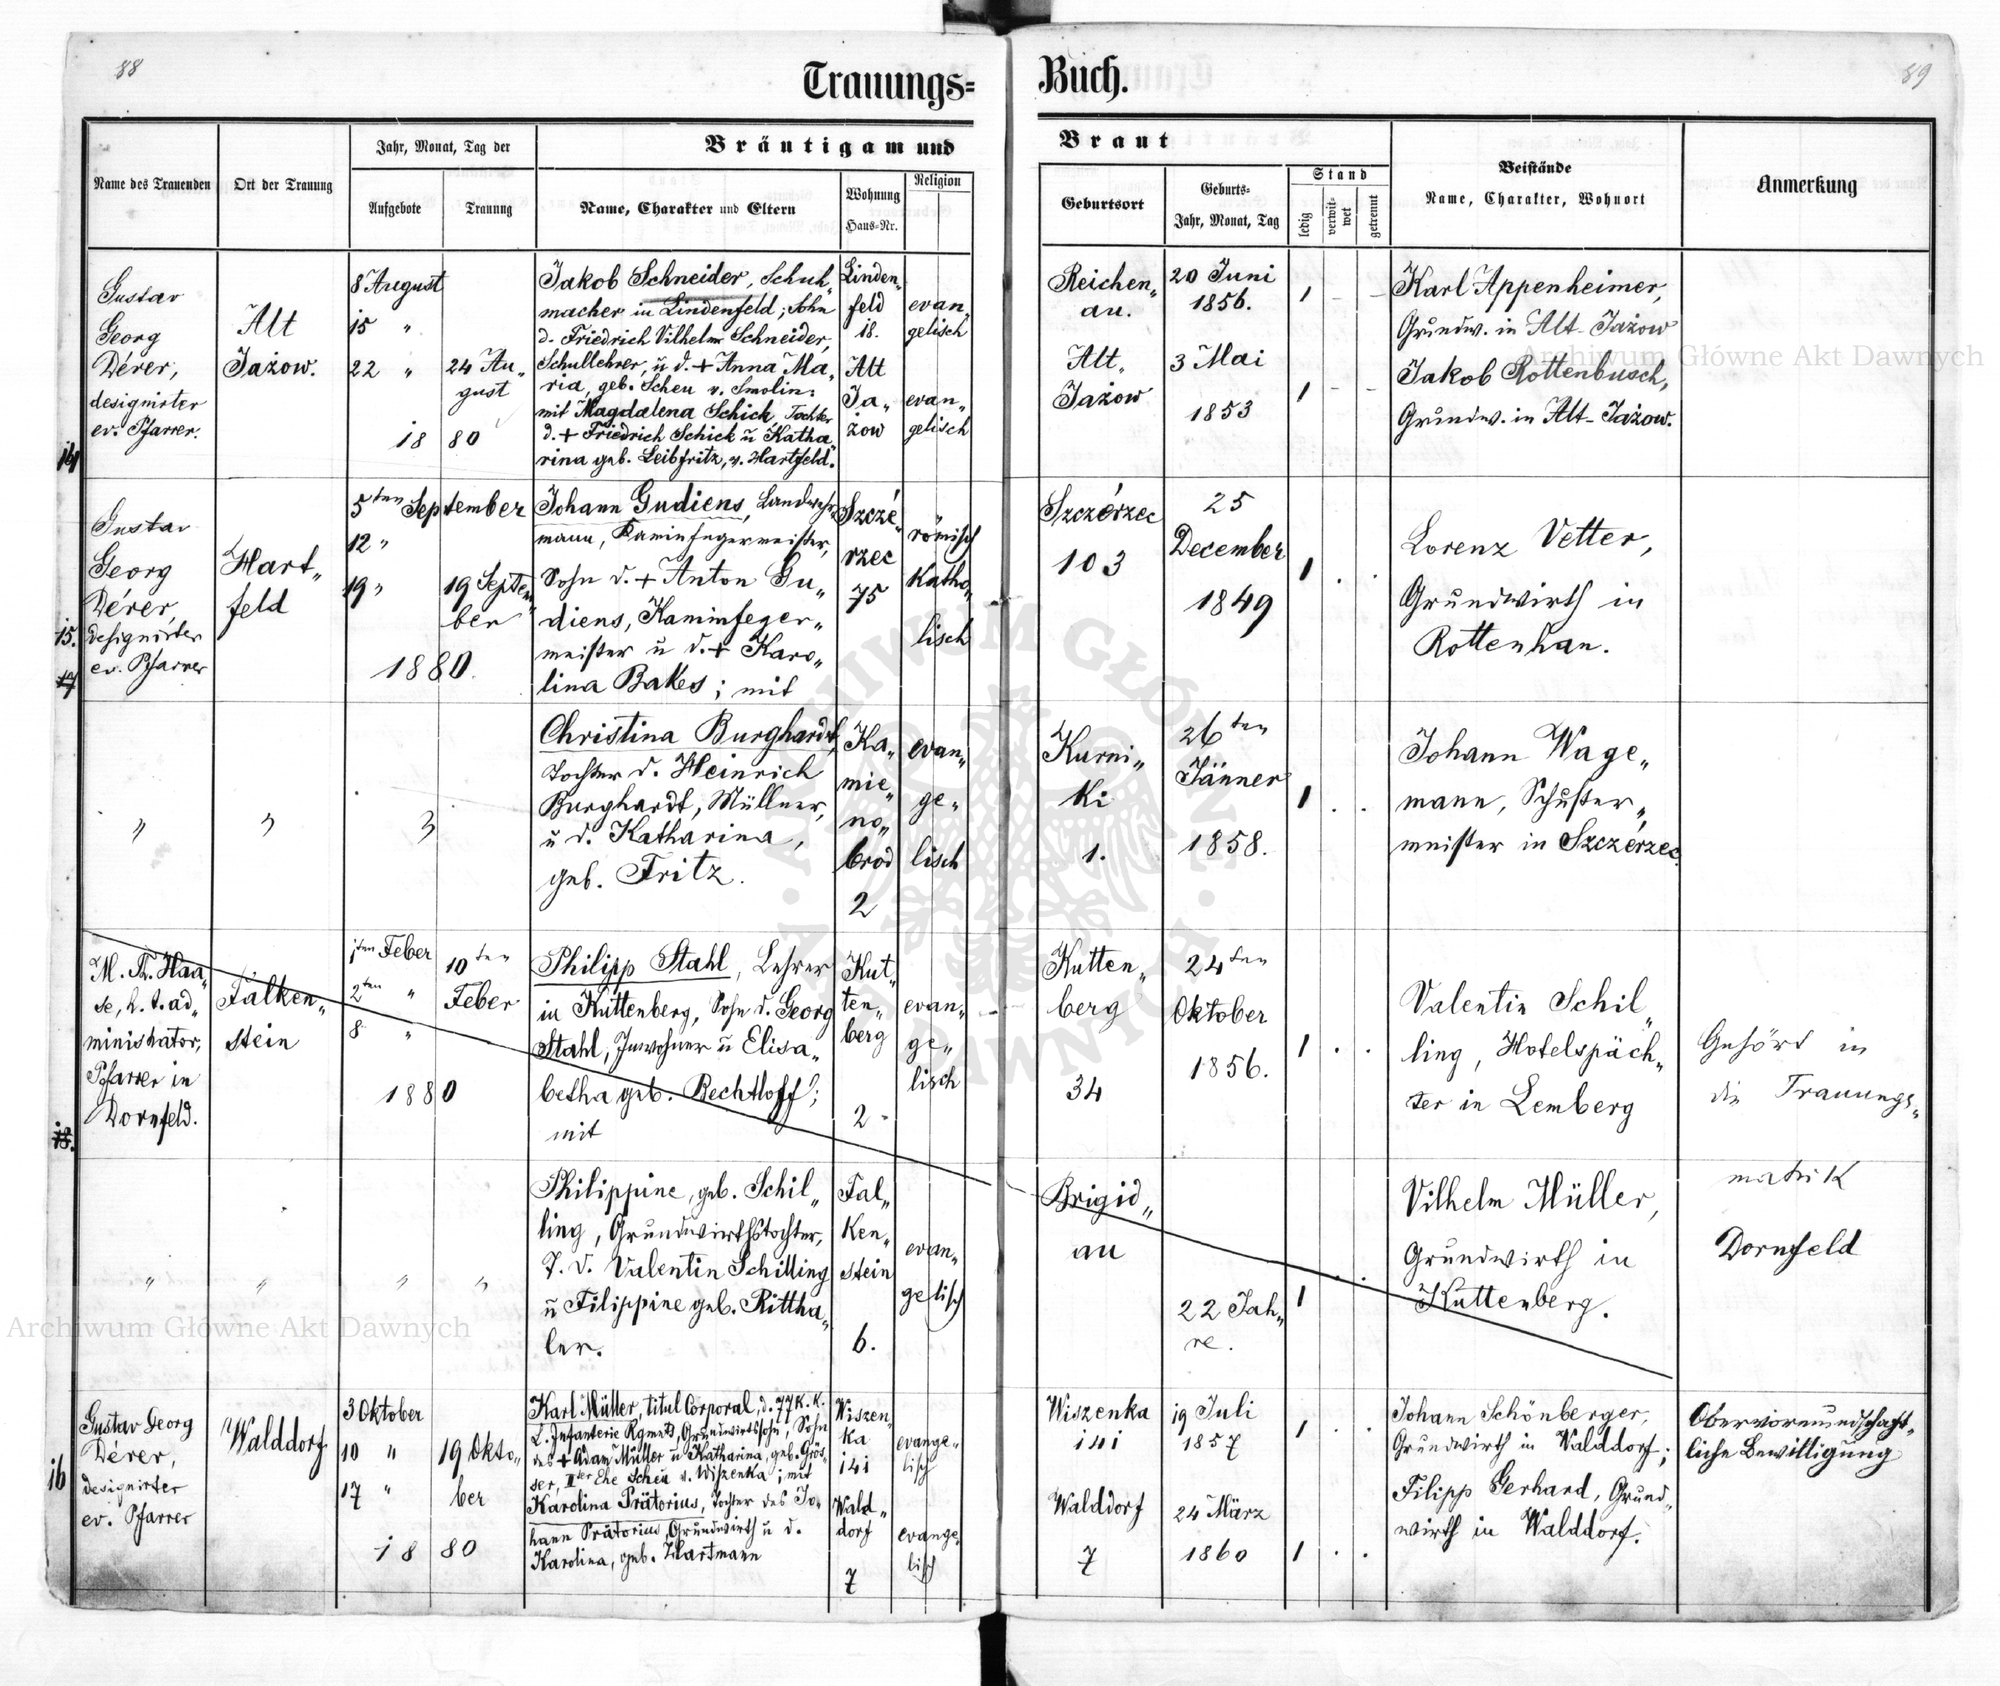 88
89
Trauungs=
Buch.
Name des Trauenden
Ort der Trauung
Jahr, Monat, Tag der
Aufgebote
Trauung
Bräutigam und
Name, Charakter und Eltern
Wohnung
Haus=Nr.
Religion
Braut
Geburtsort
Geburts=
Jahr, Monat, Tag
Stand
ledig
verwit=
wet
getrennt
Beistände
Name, Charakter, Wohnort
Anmerkung
14
Gustav
Georg
Dérer,
designirter
ev. Pfarrer.
Alt
Jažow.
8 August
15 "
22 "
24 Au„
gust
18 80
Jakob Schneider, Schuh„
macher in Lindenfeld; Sohn
d. Friedrich Vilhelm Schneider,
Schullehrer, u d. + Anna Ma„
ria, geb. Scheu v. Smolin:
mit Magdalena Schick Tochter
d. + Friedrich Schick u Katha„
rina geb. Leibfritz, v. Hartfeld.
Linden„
feld
18.
Alt
Ja„
żow
evan„
gelisch
evan„
gelisch
Reichen„
au.
Alt„
Jażow
20 Juni
1856.
3 Mai
1853
1 - -
1 - -
Karl Appenheimer,
Grundw. in Alt-Jażow
Jakob Rottenbusch,
Grundw. in Alt-Jażow.
15.
17
Gustav
Georg
Dérer,
designirter
ev. Pfarrer
Hart„
feld
5ten September
12 "
19 "
19 Septem„
ber
1880.
Johann Gudiens, Landwehr„
mann, Kaminfegermeister,
Sohn d. + Anton Gu„
diens, Kaminfeger„
meister u d. + Karo„
lina Bakes; mit
Szczé„
rzec
75
römisch
Katho„
lisch
Szczérzec
103
25
December
1849
1 . .
Lorenz Vetter,
Grundwirth in
Rottenhan.
"
"
"
Christina Burghardt,
Tochter d. Heinrich
Burghardt, Müllner,
u d. Katharina,
geb. Fritz.
Ka„
mie„
no„
brod
2
evan„
ge„
lisch
Kurni„
ki
1.
26ten
Jänner
1858.
1 . .
Johann Wage„
mann, Schuster„
meister in Szczérzec
18.
M. Th. Haa„
se, h. t. ad„
ministrator,
Pfarrer in
Dornfeld.
Falken„
stein
1ten Feber
2ten "
8 "
10ten
Feber
1880
Philipp Stahl, Lehrer
in Kuttenberg, Sohn d. Georg
Stahl, Inwohner u Elisa„
betha geb. Bechtloff;
mit
Kut„
ten„
berg
2
evan„
ge„
lisch
Kutten„
berg
34
24ten
Oktober
1856.
1 . .
Valentin Schil„
ling, Hotelspäch„
ter in Lemberg
Gehört in
die Trauungs„
"
"
"
"
Philippine, geb. Schil„
ling, Grundwirthstochter,
T. d. Valentin Schilling
u Filippine geb. Rittha„
ler.
Fal„
ken„
stein
6.
evan„
gelisch
Brigid„
au
22 Jah„
re.
1 . .
Vilhelm Müller,
Grundwirth in
Kuttenberg.
matrik
Dornfeld
16
Gustav Georg
Dérer,
designirter
ev. Pfarrer
Walddorf
3 Oktober
10 "
17 "
19 Okto„
ber
18 80
Karl Müller, titul Corporal, d. 77 K. K.
L. Infanterie Rgmts, Grundwirtssohn, Sohn
des + Adam Müller u Katharina, geb. Grös„
ser, IIter Ehe Scheu v. Wiszenka; mit
Karolina Prätorius, Tochter des Jo„
hann Prätorius, Grundwirth u d.
Karolina, geb. Hartmann
Wiszen„
ka
141
Wald„
dorf
7
evange„
lisch
evange„
lisch
Wiszenka
141
Walddorf
7
19 Juli
1857
24 März
1860
1 . .
1 . .
Johann Schönberger,
Grundwirth in Walddorf;
Filipp Gerhard, Grund„
wirth in Walddorf.
Obervormundschaft„
liche Bewilligung
Archiwum Główne Akt Dawnych
Archiwum Główne Akt Dawnych
ARCHIWUM GŁÓWNE · AKT DAWNYCH ·